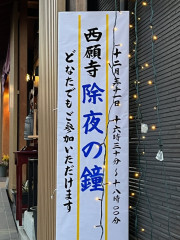 十二月三十一日 十六時三十分～十八時〇〇分
西願寺 除夜の鐘
どなたでもご参加いただけます